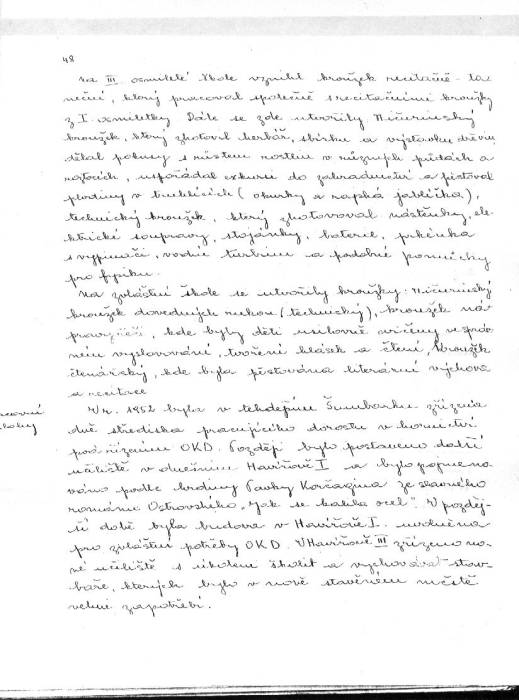 48
Na III osmileté škole vznikl kroužek recitačně - ta-
neční, který pracoval společně s recitačními kroužky
z I. osmiletky. Dále se zde utvořily Mičurinský
kroužek, který zhotovil herbář, sbírku a výstavku dřevin,
dělal pokusy s růstem rostlin v různých půdách a
roztocích, uspořádal exkursi do zahradnictví a pěstoval
plodiny v truhlících (okurky a rajská jablíčka),
technický kroužek, který zhotovoval nástěnky, ele-
ktrické soupravy, stojánky, baterie, prkénka
s vypínači, vodní turbinu a podobné pomůcky
pro fysiku.
Na zvláštní škole se utvořily kroužky: Mičurinský
kroužek dovedných rukou (technický), kroužek ná-
pravy řeči, kde byly děti usilovně cvičeny v správ-
ném vyslovování, tvoření hlásek a čtení, kroužek
čtenářský, kde byla pěstována literární výchova
a recitace
V r. 1952 byla v tehdejším Šumbarku zřízena
dvě střediska pracujícího dorostu v hornictví
podřízením OKD. Později bylo postaveno další
učiliště v dnešním Havířově I a bylo pojmeno-
váno podle hrdiny Pavky Korčagina ze slavného
románu Ostrovského „Jak se kalila ocel". V pozděj-
ší době byla budova v Havířově I. uvolněna
pro zvláštní potřeby OKD. V Havířově III zřízeno no-
vé učiliště s úkolem školit a vychovávat stav-
baře, kterých bylo v nově stavěném městě
velmi zapotřebí.